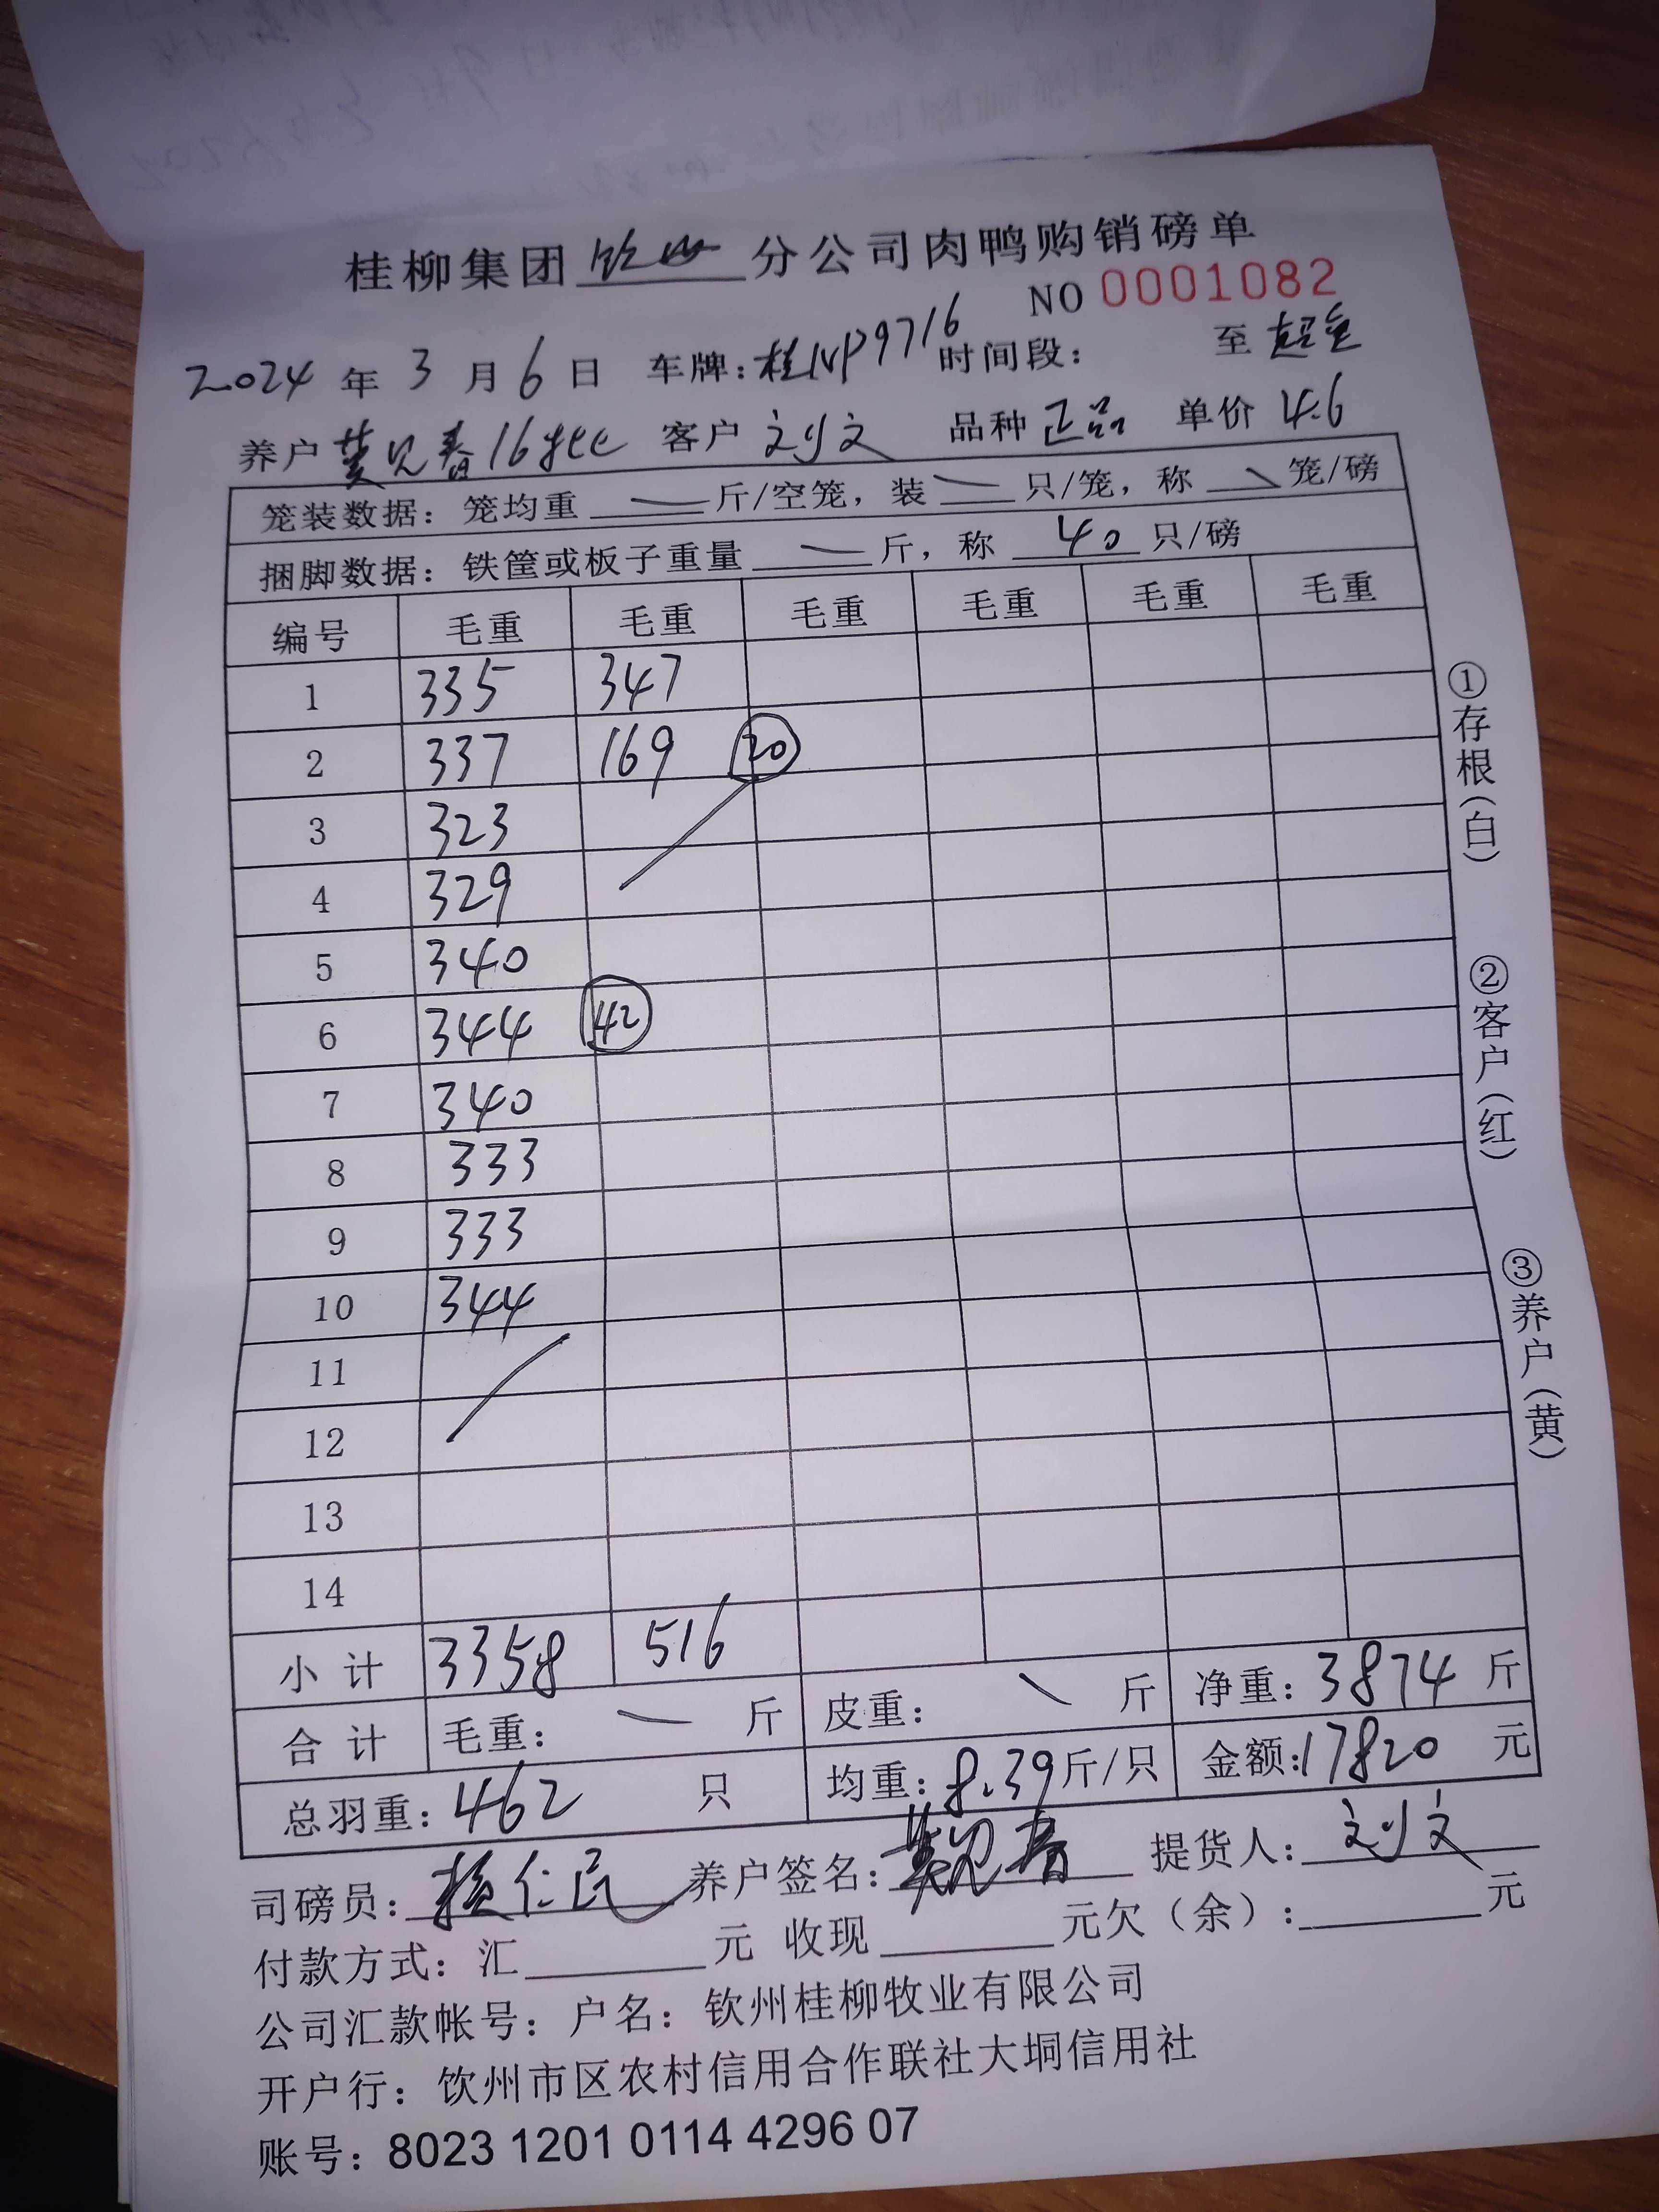 桂柳集团 钦州 分公司肉鸭购销磅单
NO 0001082
2024 年 3 月 6 日 车牌: 桂NP9716 时间段: 至
养户 莫见春 客户 刘文 品种 正品 单价 4.6
笼装数据: 笼均重 斤/空笼, 装 只/笼, 称 笼/磅
捆脚数据: 铁筐或板子重量 斤, 称 40 只/磅
编号 毛重 毛重 毛重 毛重 毛重 毛重
1 335 347
2 337 169 20
3 323
4 329
5 340
6 344 42
7 340
8 333
9 333
10 344
11
12
13
14
小计 3358 516
合计 毛重: 斤 皮重: 斤 净重: 3874 斤
总羽重: 462 只 均重: 8.39 斤/只 金额: 17820 元
司磅员: 仁民 养户签名: 莫见春 提货人: 刘文
付款方式: 汇 元 收现 元欠(余): 元
公司汇款帐号: 户名: 钦州桂柳牧业有限公司
开户行: 钦州市区农村信用合作联社大垌信用社
账号: 8023 1201 0114 4296 07
①存根(白)
②客户(红)
③养户(黄)